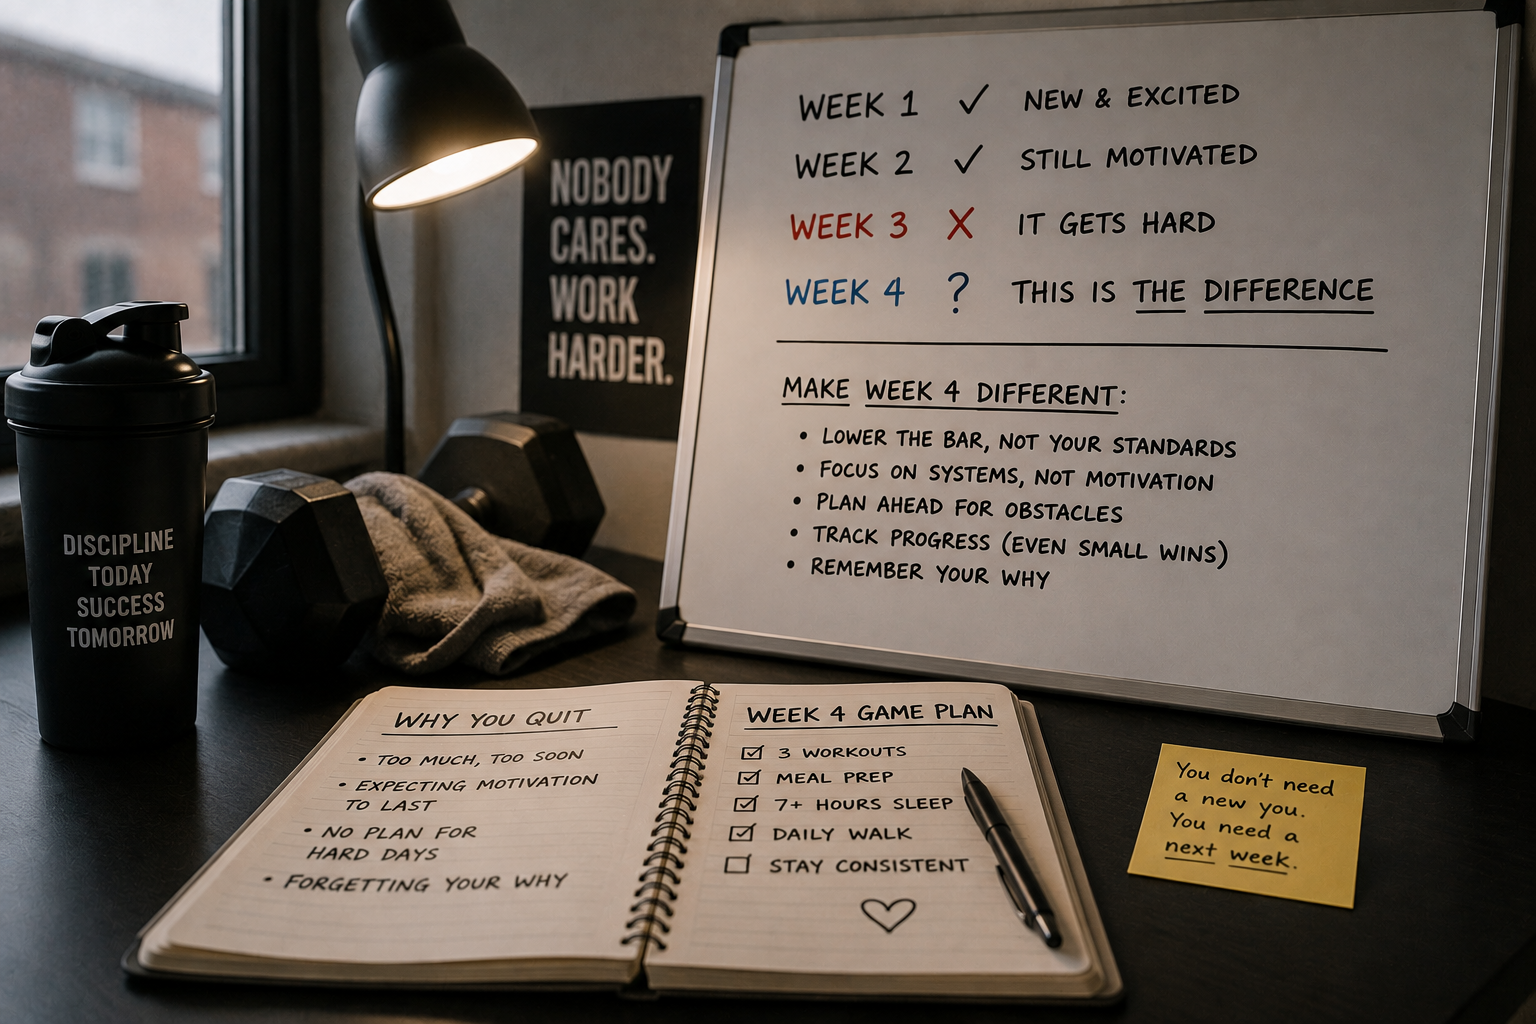 NOBODY
CARES.
WORK
HARDER.
WEEK 1 ✓ NEW & EXCITED
WEEK 2 ✓ STILL MOTIVATED
WEEK 3 X IT GETS HARD
WEEK 4 ? THIS IS THE DIFFERENCE
MAKE WEEK 4 DIFFERENT:
• LOWER THE BAR, NOT YOUR STANDARDS
• FOCUS ON SYSTEMS, NOT MOTIVATION
• PLAN AHEAD FOR OBSTACLES
• TRACK PROGRESS (EVEN SMALL WINS)
• REMEMBER YOUR WHY
DISCIPLINE
TODAY
SUCCESS
TOMORROW
WHY YOU QUIT
• TOO MUCH, TOO SOON
• EXPECTING MOTIVATION
TO LAST
• NO PLAN FOR
HARD DAYS
• FORGETTING YOUR WHY
WEEK 4 GAME PLAN
☑ 3 WORKOUTS
☑ MEAL PREP
☑ 7+ HOURS SLEEP
☑ DAILY WALK
☐ STAY CONSISTENT
♡
You don't need
a new you.
You need a
next week.